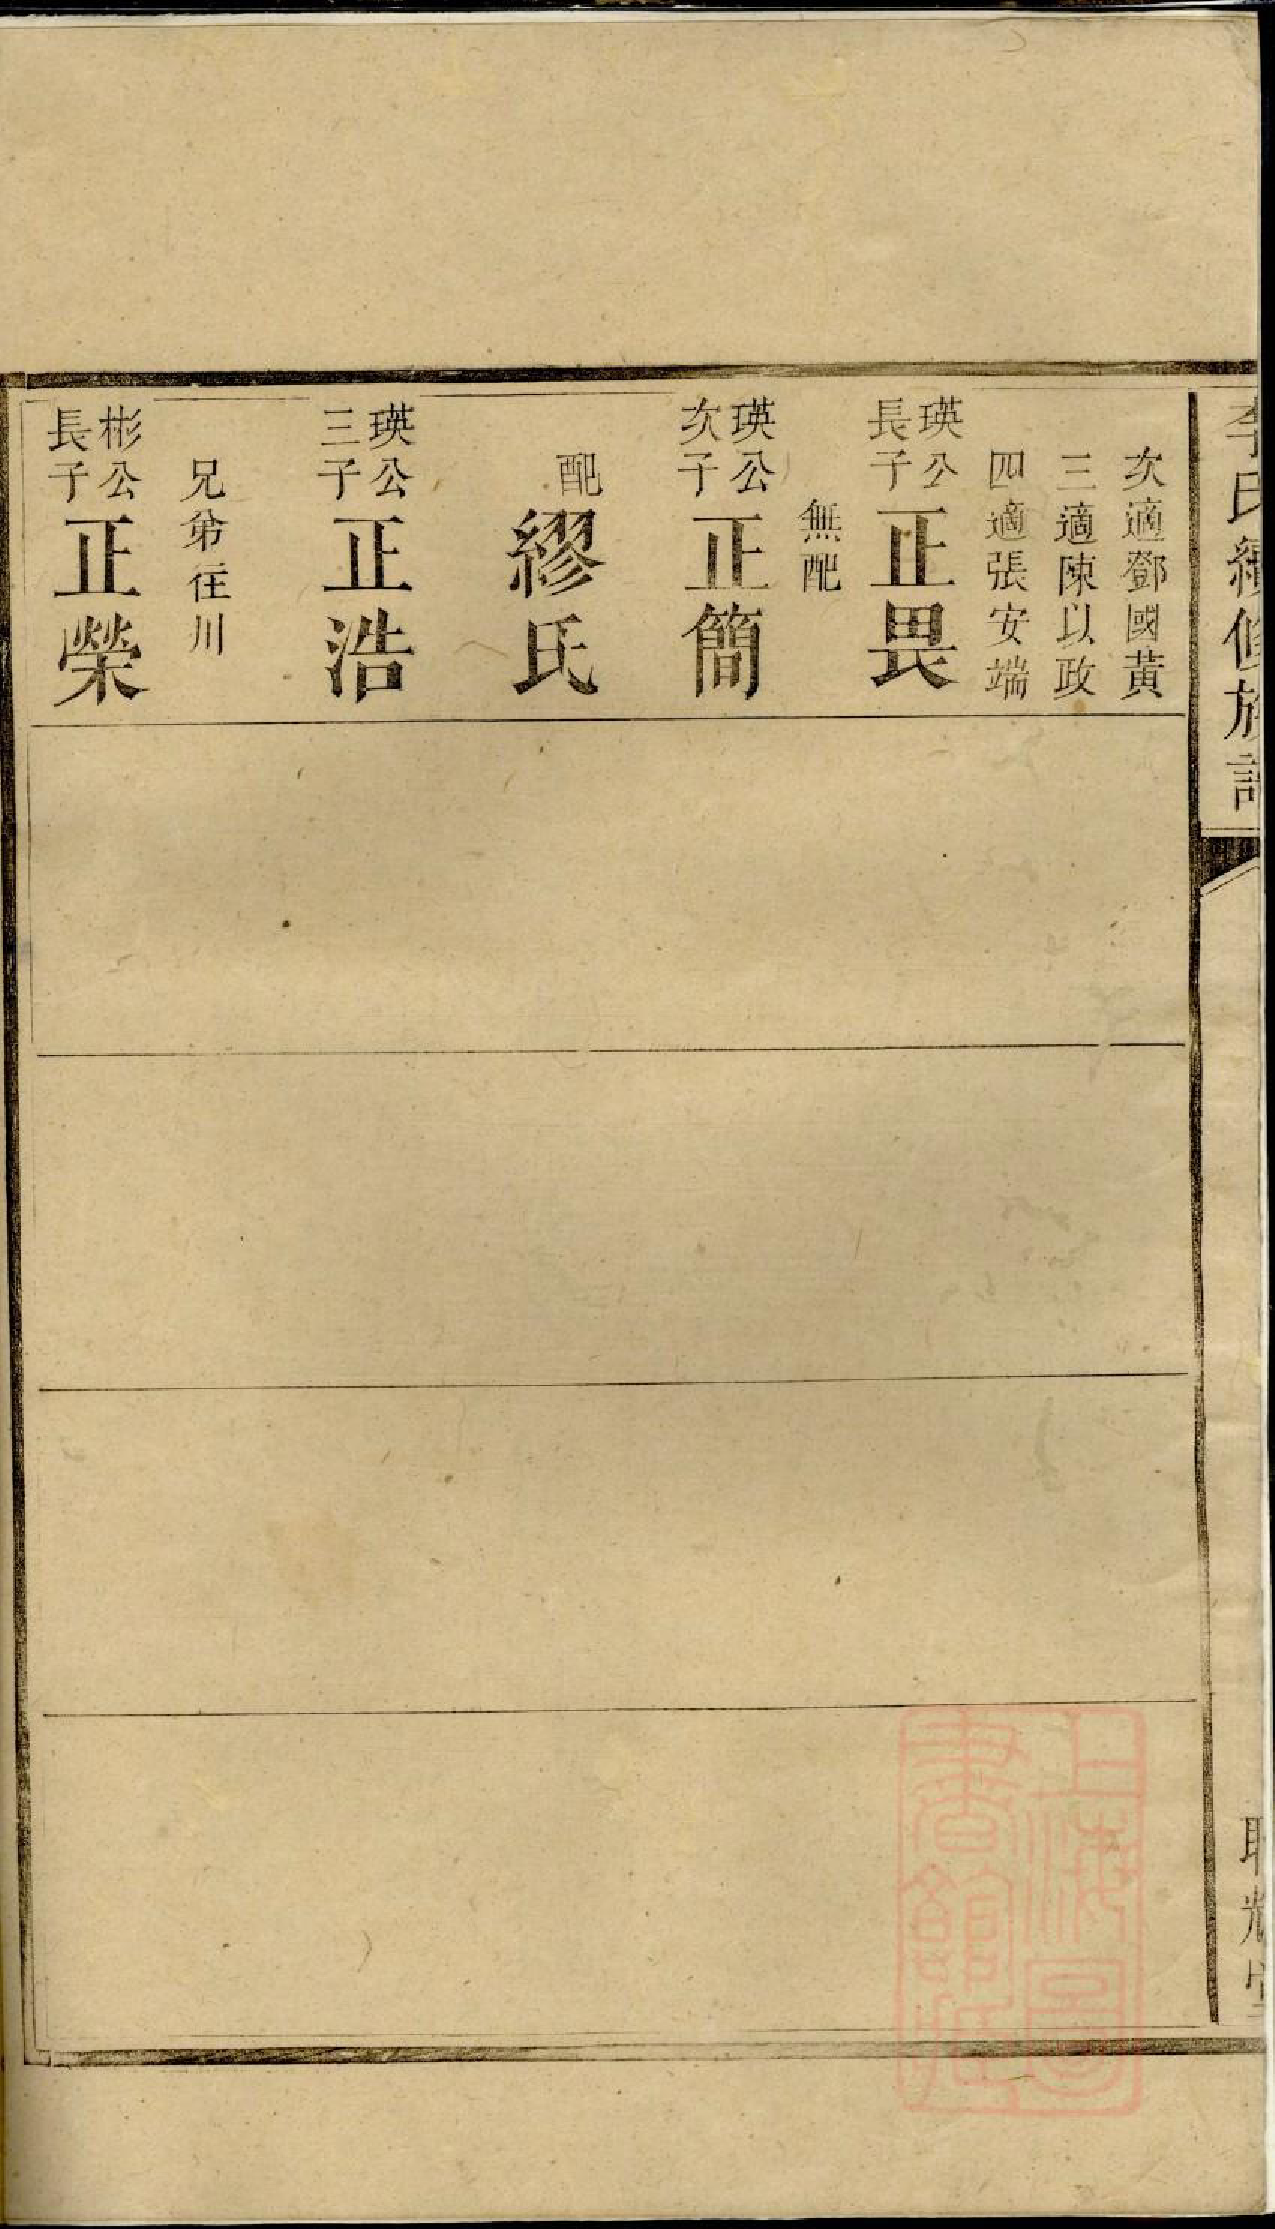 李氏續修族譜
次適鄧國黃
三適陳以政
四適張安端
瑛公長子正畏
無配
瑛公次子正簡
配繆氏
瑛公三子正浩
兄弟往川
彬公長子正榮
上海圖書館藏